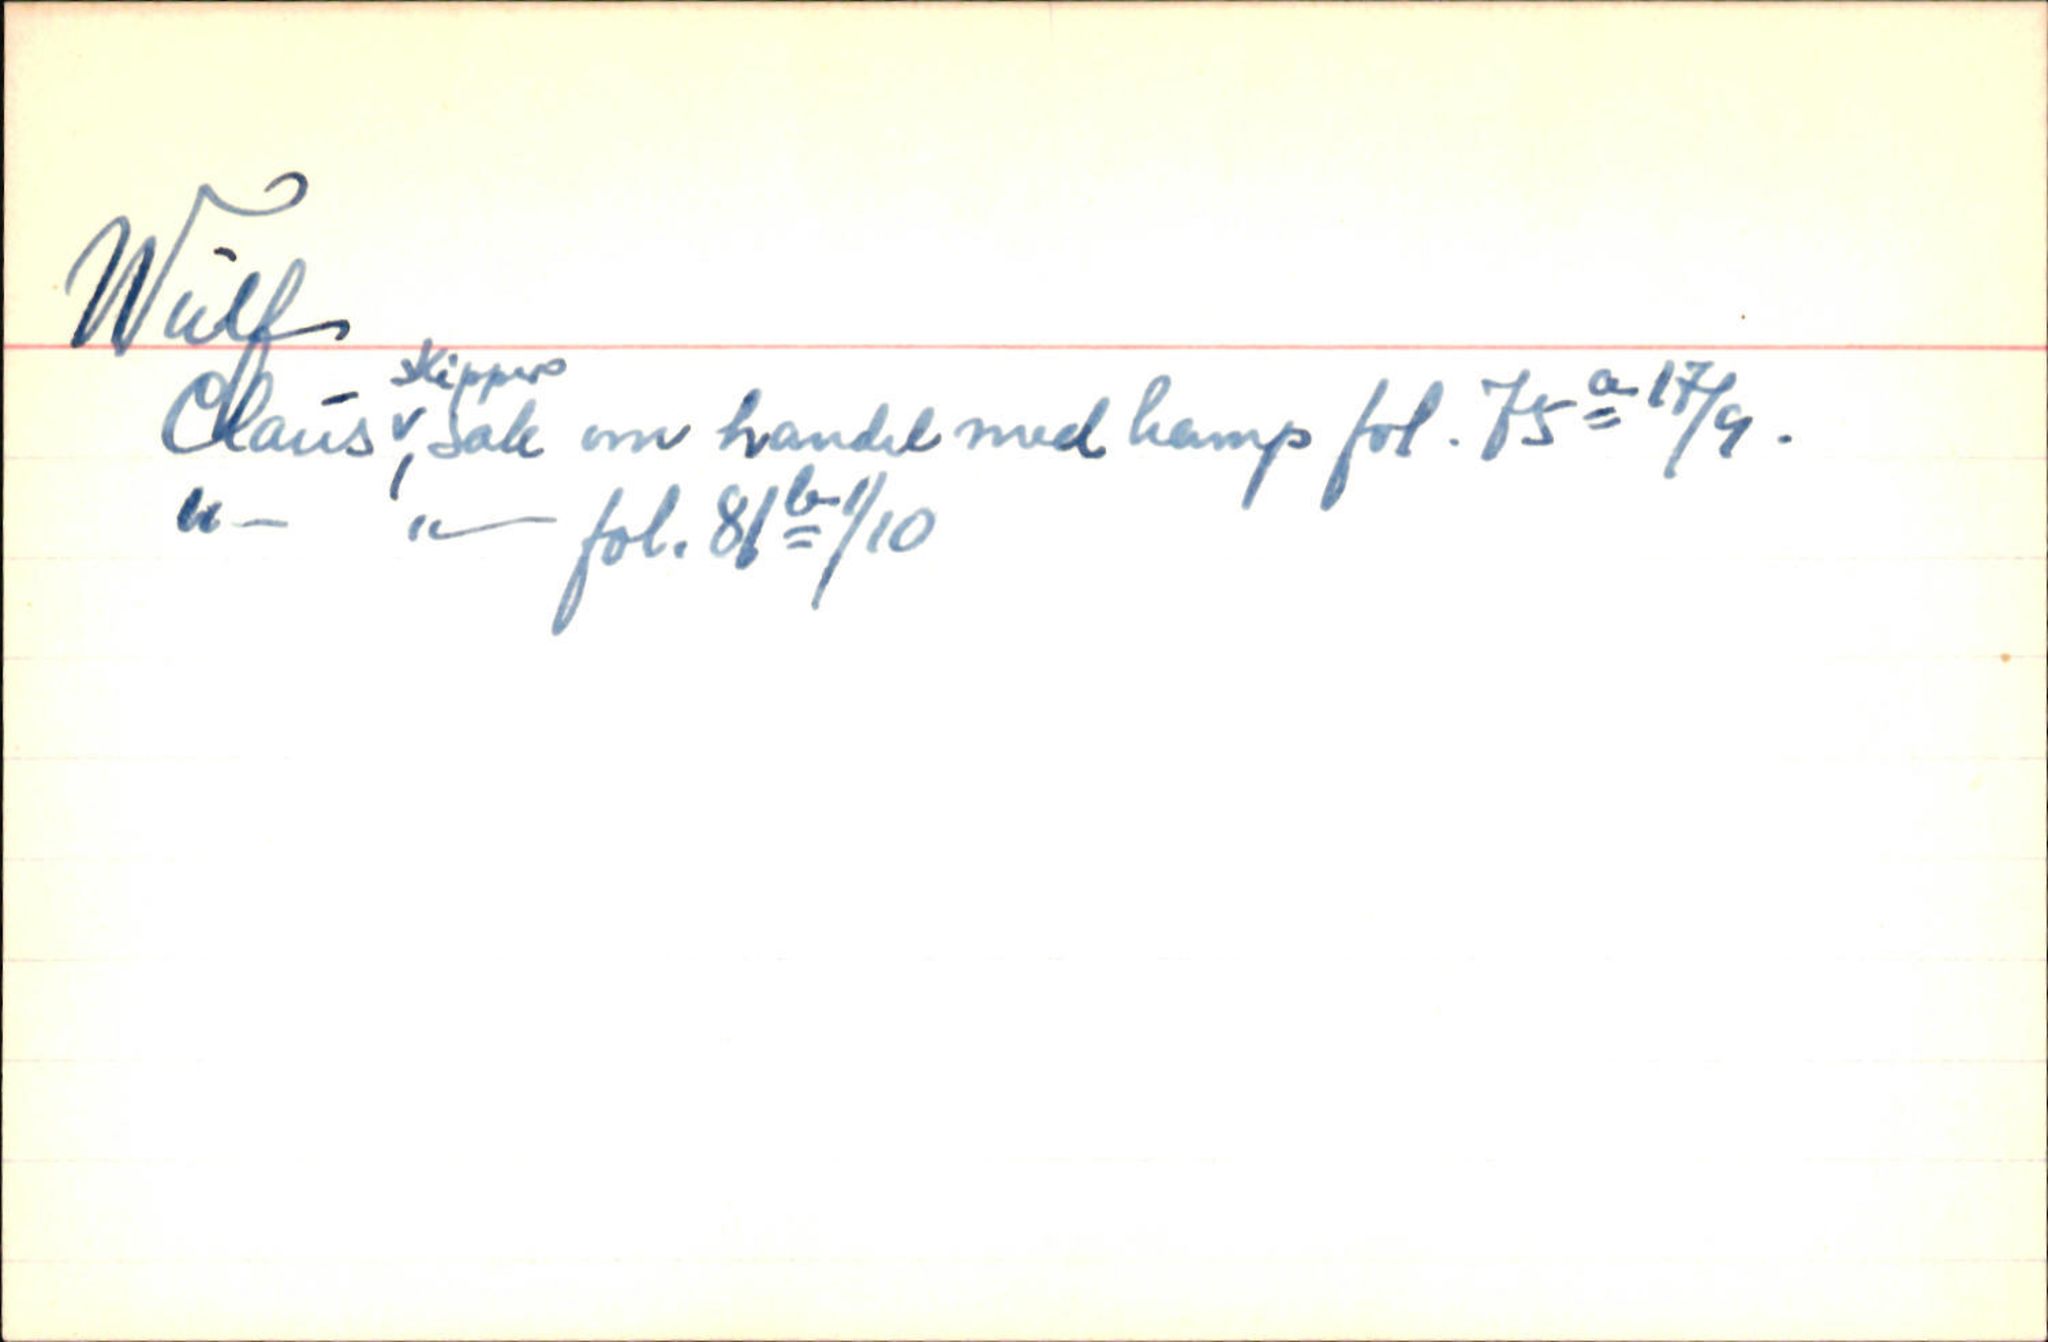 Wulf
skippers
Claus, Sak om handel med hamp fol. 75 a 17/9.
"— "— fol. 81 b 1/10